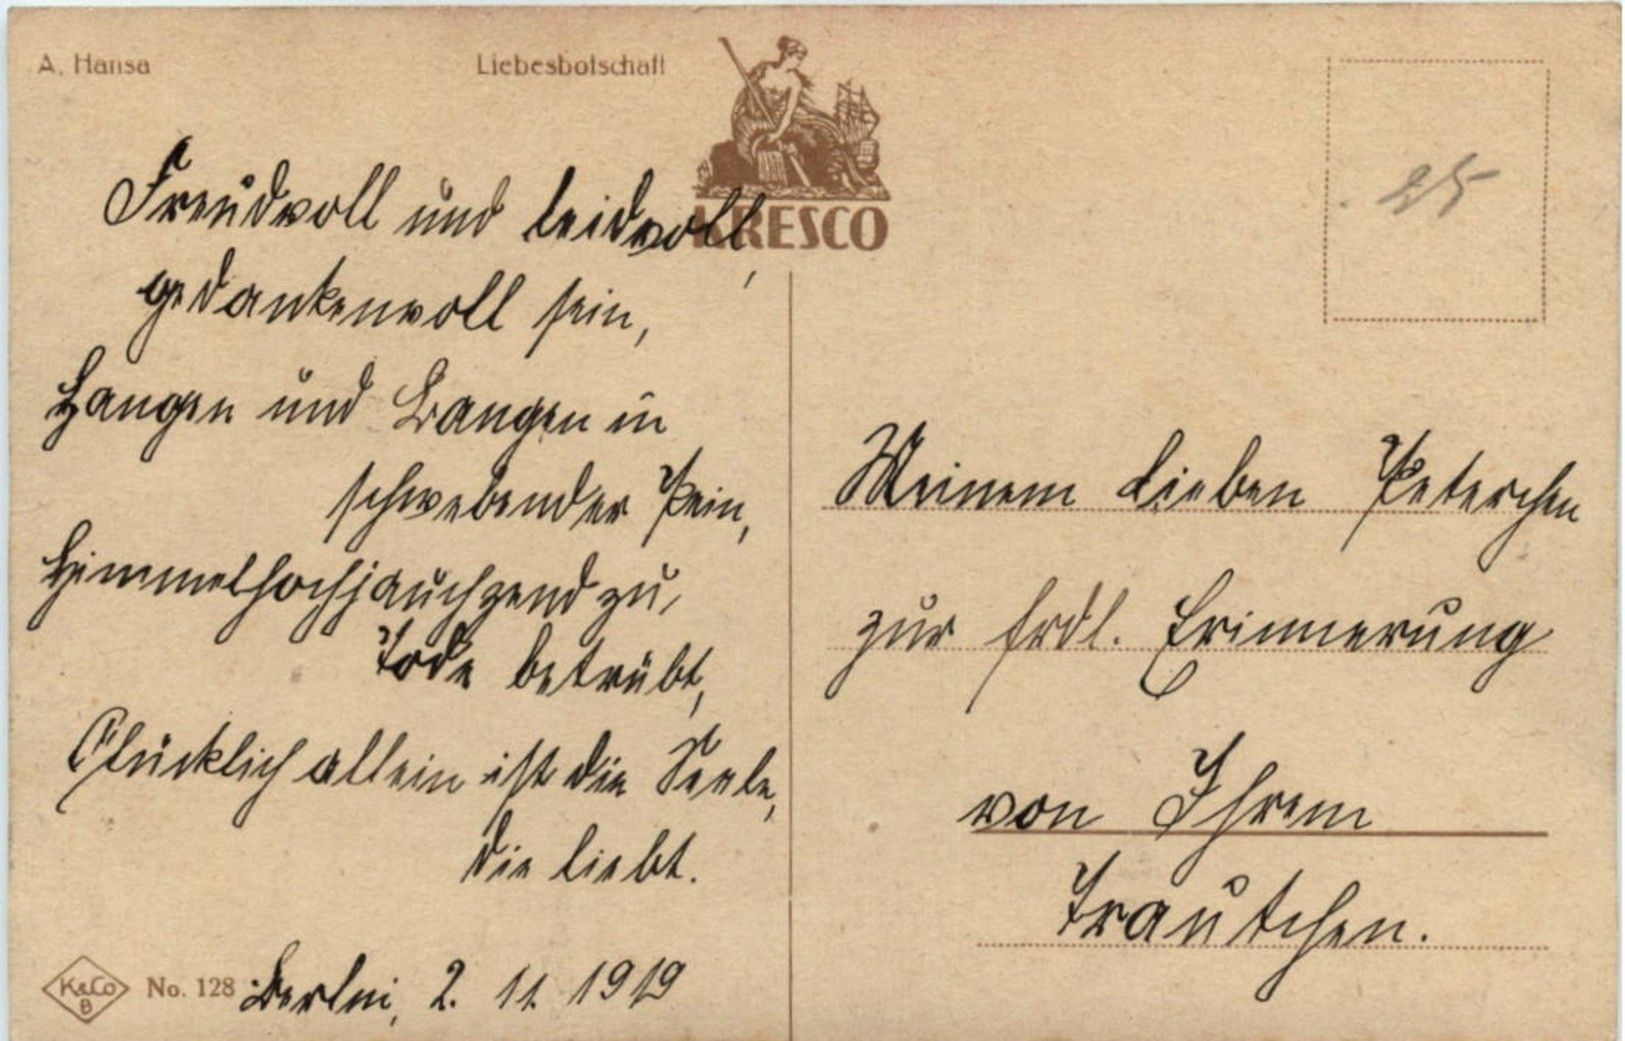 A. Hansa
Liebesbotschaft
KRESCO
25
Freudvoll und leidvoll,
gedankenvoll sein,
Hangen und Bangen in
schwebender Pein,
Himmelhochjauchzend zu,
Tode betrübt,
Glücklich allein ist die Seele,
die liebt.
K&Co
B
No. 128
Berlin, 2. 11. 1919
Meinem lieben Peterchen
zur frdl. Erinnerung
von Ihrem
Trautchen.